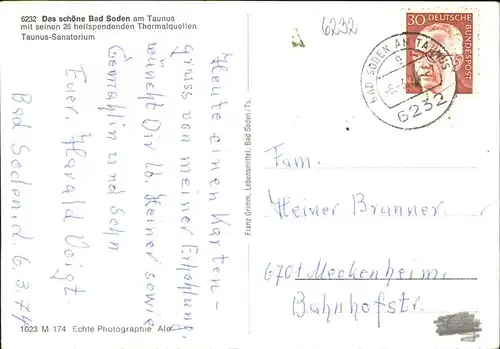 6232 Das schöne Bad Soden am Taunus
mit seinen 26 heilspendenden Thermalquellen
Taunus-Sanatorium
6232
30
DEUTSCHE
BUNDESPOST
BAD SODEN AM TAUNUS
6232
Heute einen Karten-
gruss von meiner Erholung,
wünscht Dir lb. Heiner sowie
Gemahlin und Sohn
Euer, Harald Voigt.
Bad Soden, d. 6.3.74
Franz Grimm, Lebensmittel, Bad Soden/Ts.
Fam.
Heiner Brunner
6701 Meckenheim
Bahnhofstr.
1023 M 174 Echte Photographie